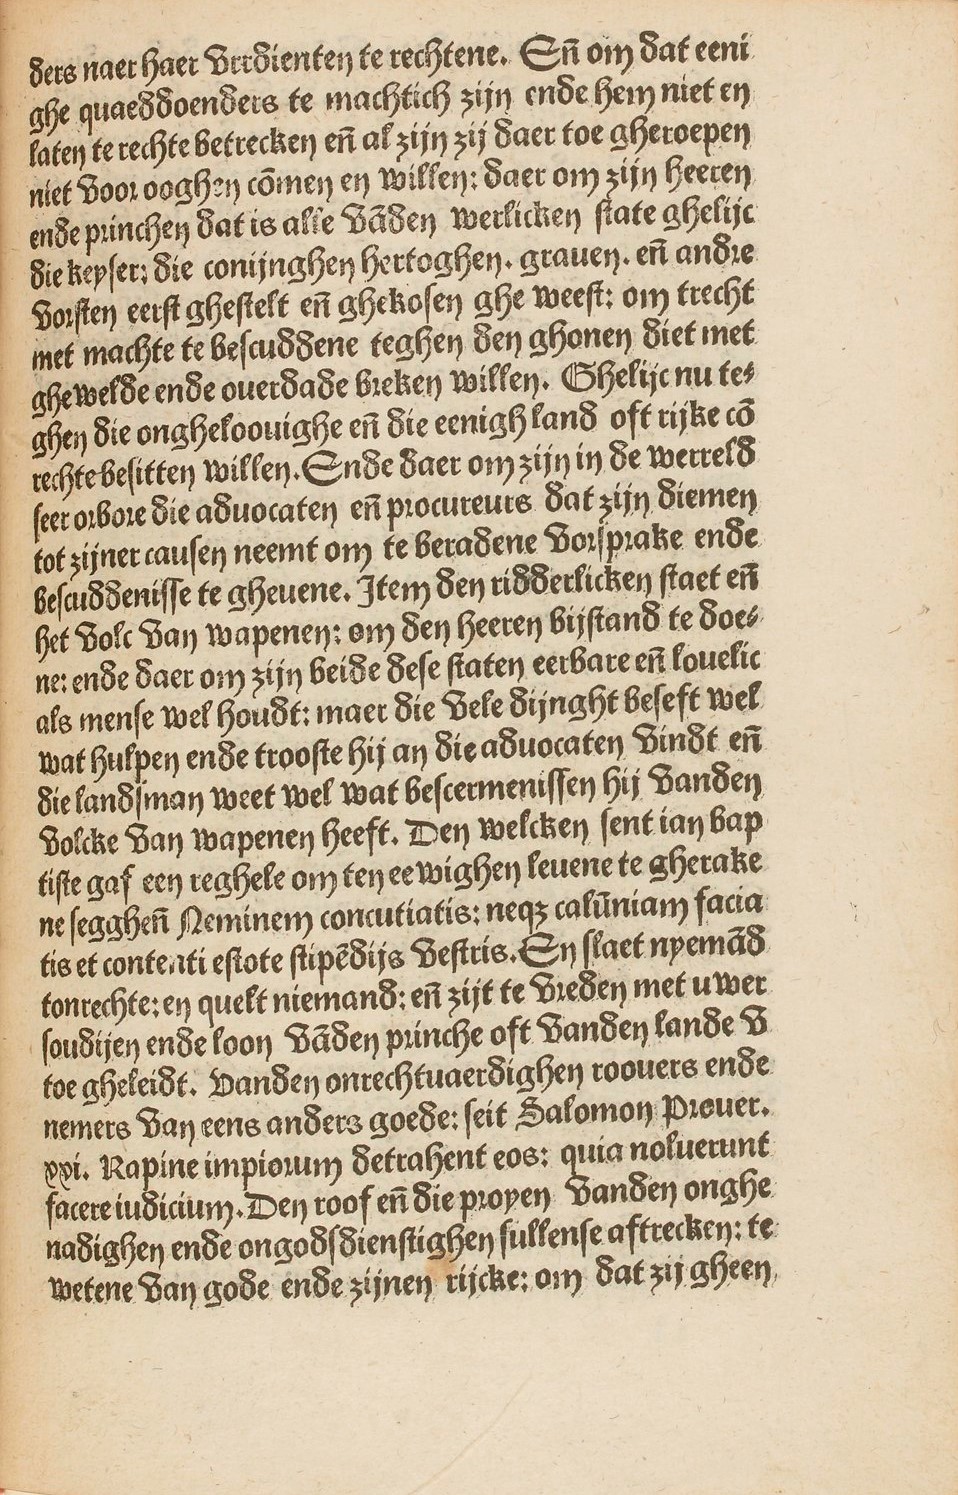 ders naer haer Vrrdienten te rechtene. Eñ om dat eeni
ghe quaeddoenders te machtich zijn ende hem niet en
laten te rechte betrecken eñ al zijn zij daer toe gheroepen
niet Voor ooghen cōmen en willen: daer om zijn heeren
ende princhen dat is alle Vādē werlicken state ghelijc
die keyser: die conijnghen hertoghen. grauen. eñ andre
Vorsten eerst ghestelt eñ ghekosen ghe weest: om trecht
met machte te bescuddene teghen den ghonen diet met
ghewelde ende ouerdade breken willen. Ghelijc nu te⸗
ghen die ongheloouighe eñ die eenigh land oft rijke cō
rechte besitten willen. Ende daer om zijn in de werreld
seer orbore die aduocaten eñ procureurs dat zijn diemen
tot zijner causen neemt om te beradene Vorsprake ende
bescuddenisse te gheuene. Item den ridderlicken staet eñ
het Volc Van wapenen: om den heeren bijstand te doe⸗
ne: ende daer om zijn beide dese staten eerbare eñ louelic
als mense wel houdt: maer die Vele dijnght beseft wel
wat hulpen ende trooste hij an die aduocaten Vindt eñ
die landsman weet wel wat bescermenissen hij Vanden
Volcke Van wapenen heeft. Den welcken sent ian bap
tiste gaf een reghele om ten eewighen leuene te gherake
ne segghēn Neminem concutiatis: neqȝ calūniam facia
tis et contenti estote stipēdijs Vestris. En slaet nyemād
tonrechte: en quelt niemand: eñ zijt te Vreden met uwer
soudijen ende loon Vāden prinche oft Vanden lande V
toe gheleidt. Vanden onrechtuaerdighen roouers ende
nemers Van eens anders goede: seit Salomon Prouer.
xxi. Rapine impiorum detrahent eos: quia noluerunt
facere iudicium. Den roof eñ die proyen Vanden onghe
nadighen ende ongodsdienstighen sullense aftrecken: te
wetene Van gode ende zijnen rijcke: om dat zij gheen